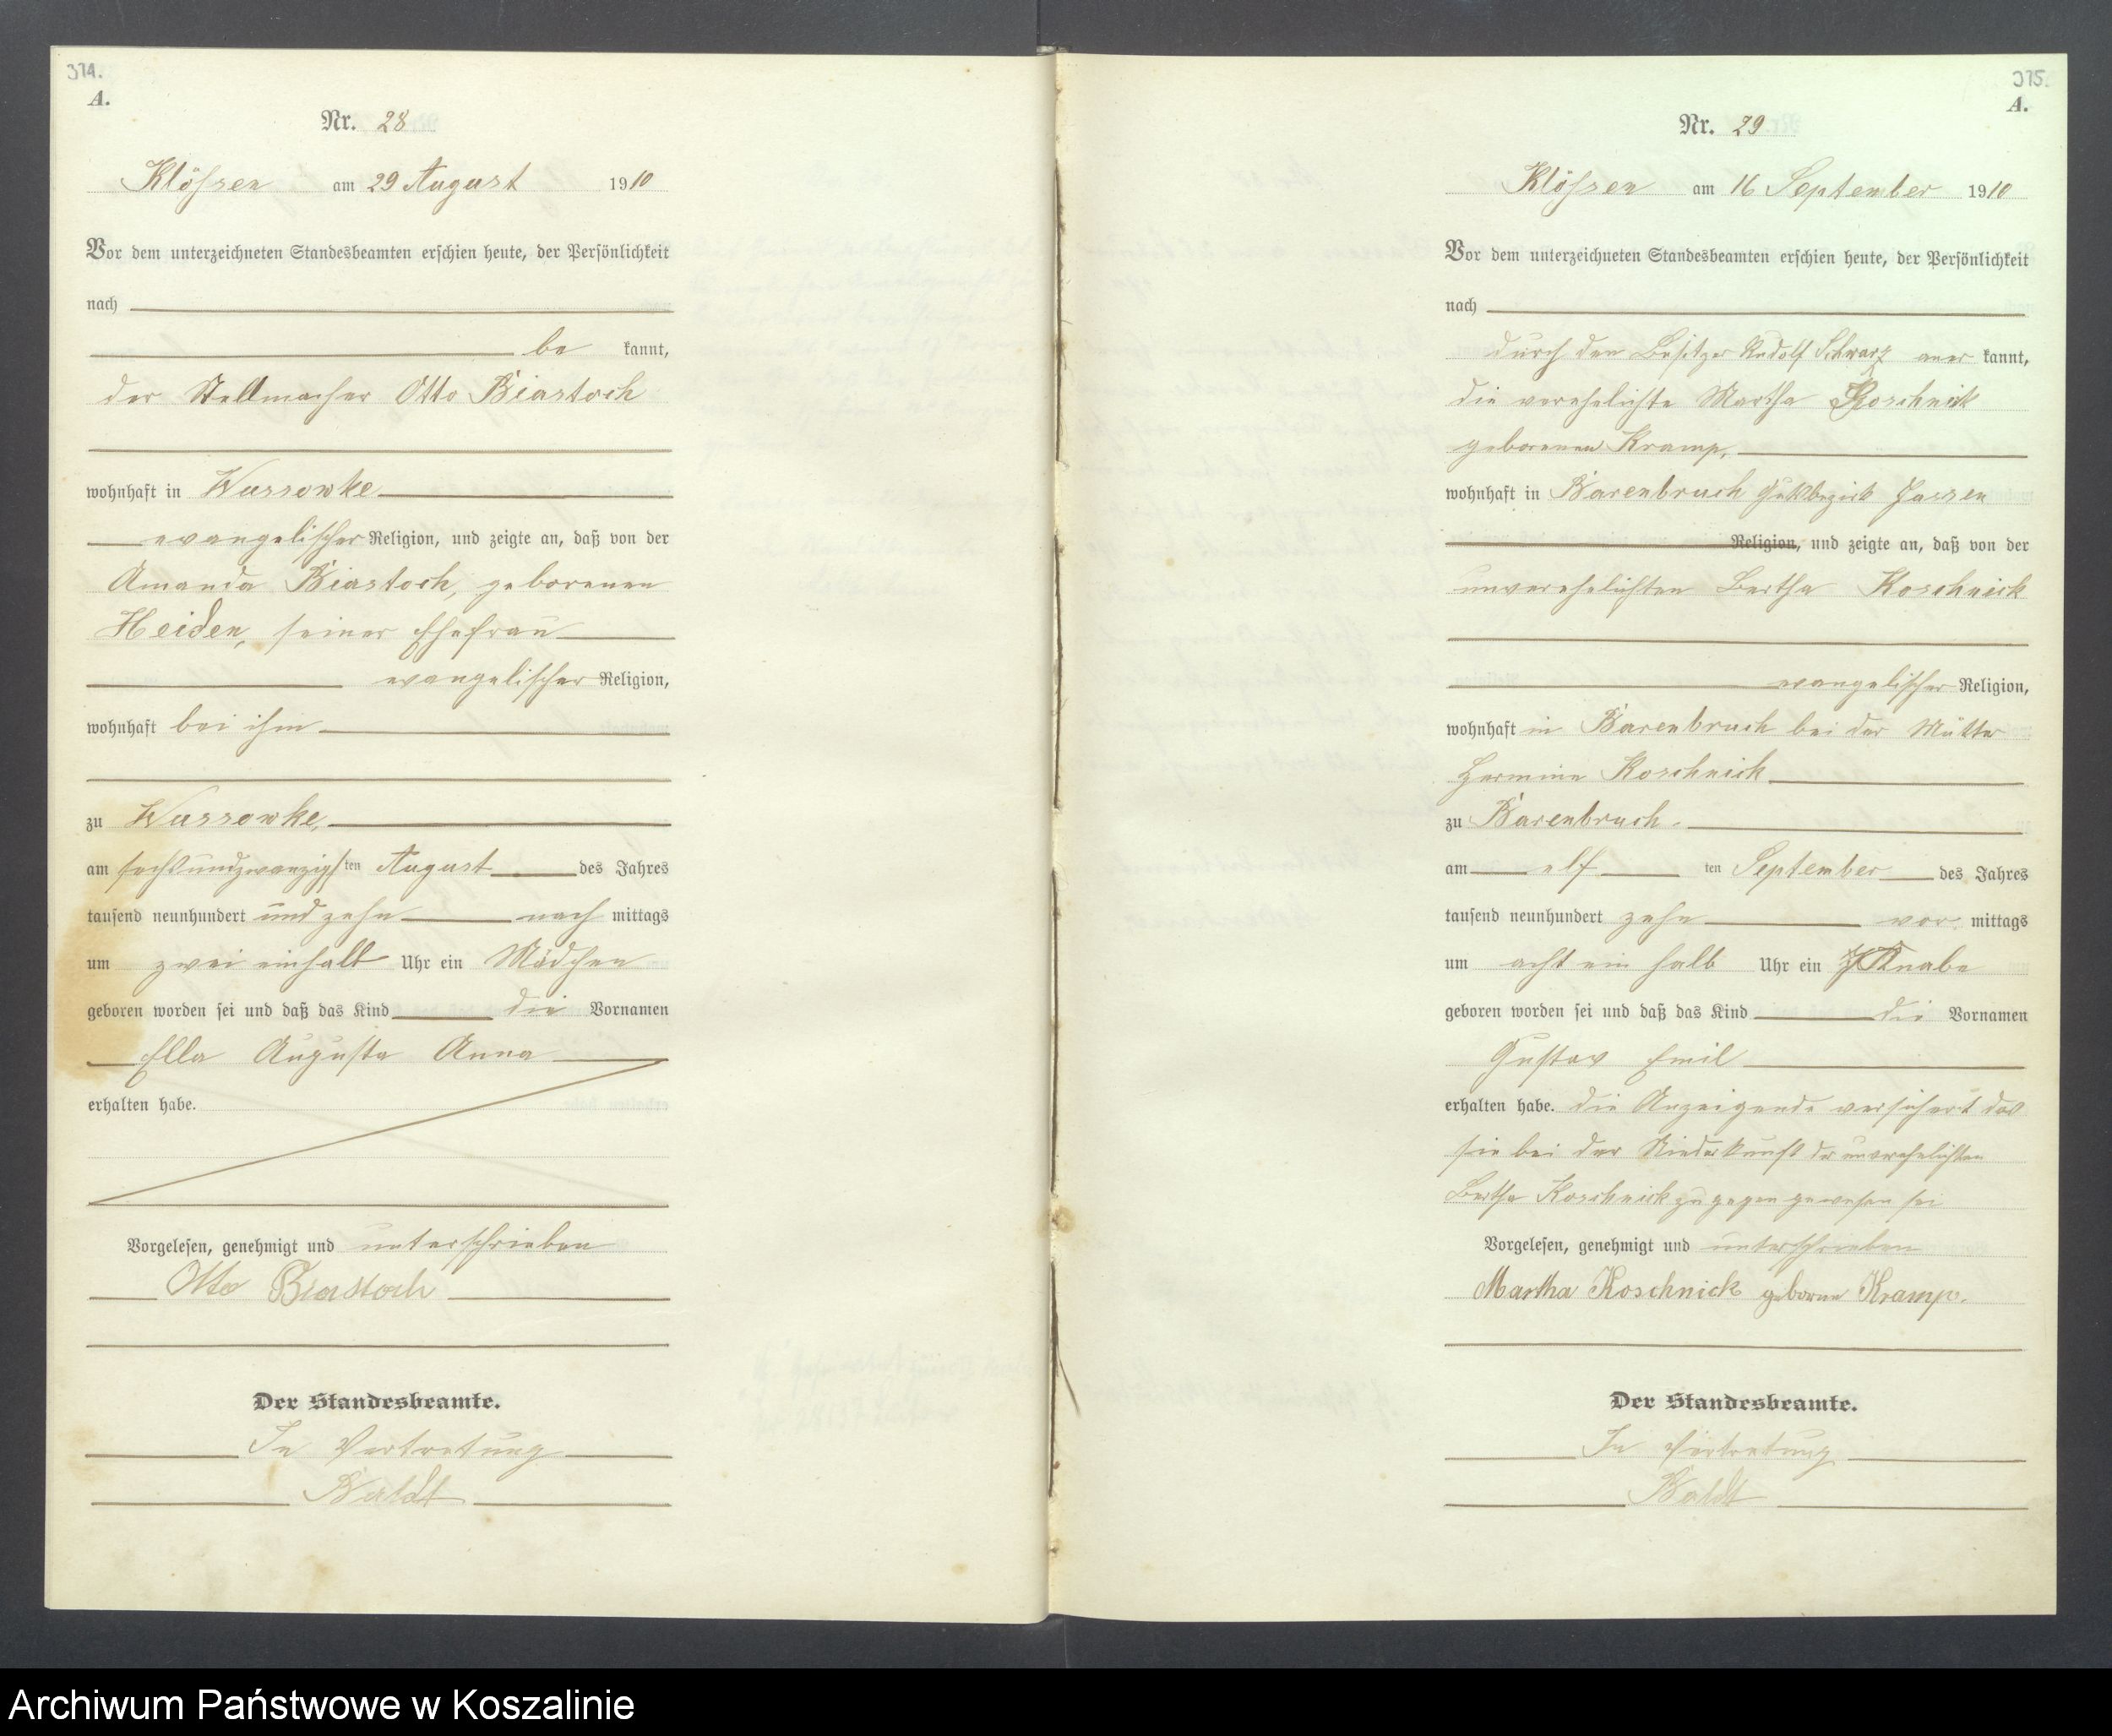 374.
A.
Nr. 28
Klössen am 29 August 1910
Vor dem unterzeichneten Standesbeamten erschien heute, der Persönlichkeit
nach
be kannt,
der Stellmacher Otto Biastoch
wohnhaft in Wussowke
evangelischer Religion, und zeigte an, daß von der
Amanda Biastoch, geborenen
Heiden, seiner Ehefrau
evangelischer Religion,
wohnhaft bei ihm
zu Wussowke,
am sechsundzwanzigsten August des Jahres
tausend neunhundert und zehn nach mittags
um zwei einhalb Uhr ein Mädchen
geboren worden sei und daß das Kind die Vornamen
Ella Augusta Anna
erhalten habe.
Vorgelesen, genehmigt und unterschrieben
Otto Biastoch
Der Standesbeamte.
In Vertretung
Baldt
375.
A.
Nr. 29
Klössen am 16 September 1910
Vor dem unterzeichneten Standesbeamten erschien heute, der Persönlichkeit
nach
durch den Besitzer Rudolf Schwarz aner kannt,
die verehelichte Martha Koschnick
geborenen Kramp,
wohnhaft in Barenbruch Gutsbezirk Jassen
Religion, und zeigte an, daß von der
unverehelichten Bertha Koschnick
evangelischer Religion,
wohnhaft in Barenbruch bei der Mutter
Hermine Koschnick
zu Barenbruch.
am elf ten September des Jahres
tausend neunhundert zehn vor mittags
um acht ein halb Uhr ein Knabe
geboren worden sei und daß das Kind die Vornamen
Gustav Emil
erhalten habe. die Anzeigende versichert das
sie bei der Niederkunft der unverehelichten
Bertha Koschnick zugegen gewesen sei
Vorgelesen, genehmigt und unterschrieben
Martha Koschnick geborne Kramp.
Der Standesbeamte.
In Vertretung
Baldt
Archiwum Państwowe w Koszalinie